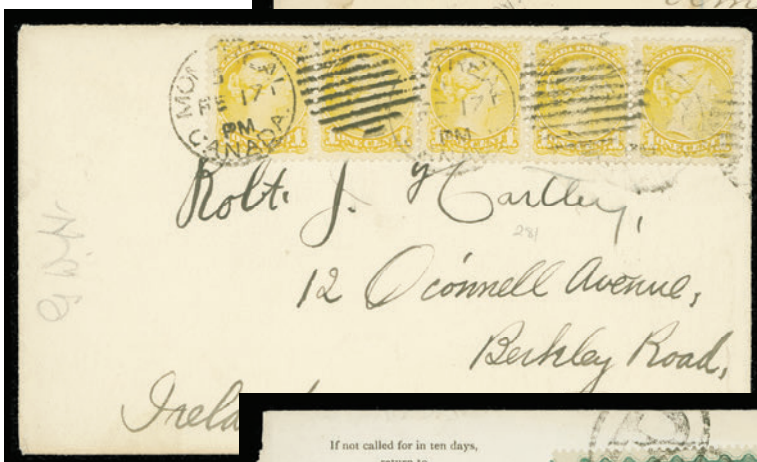 MONTREAL
FE 17
PM
CANADA
ONE CENT 1
PM
Robt. J. Hartley,
281
12 O'connell Avenue,
Berkley Road,
Irela
If not called for in ten days,
return to